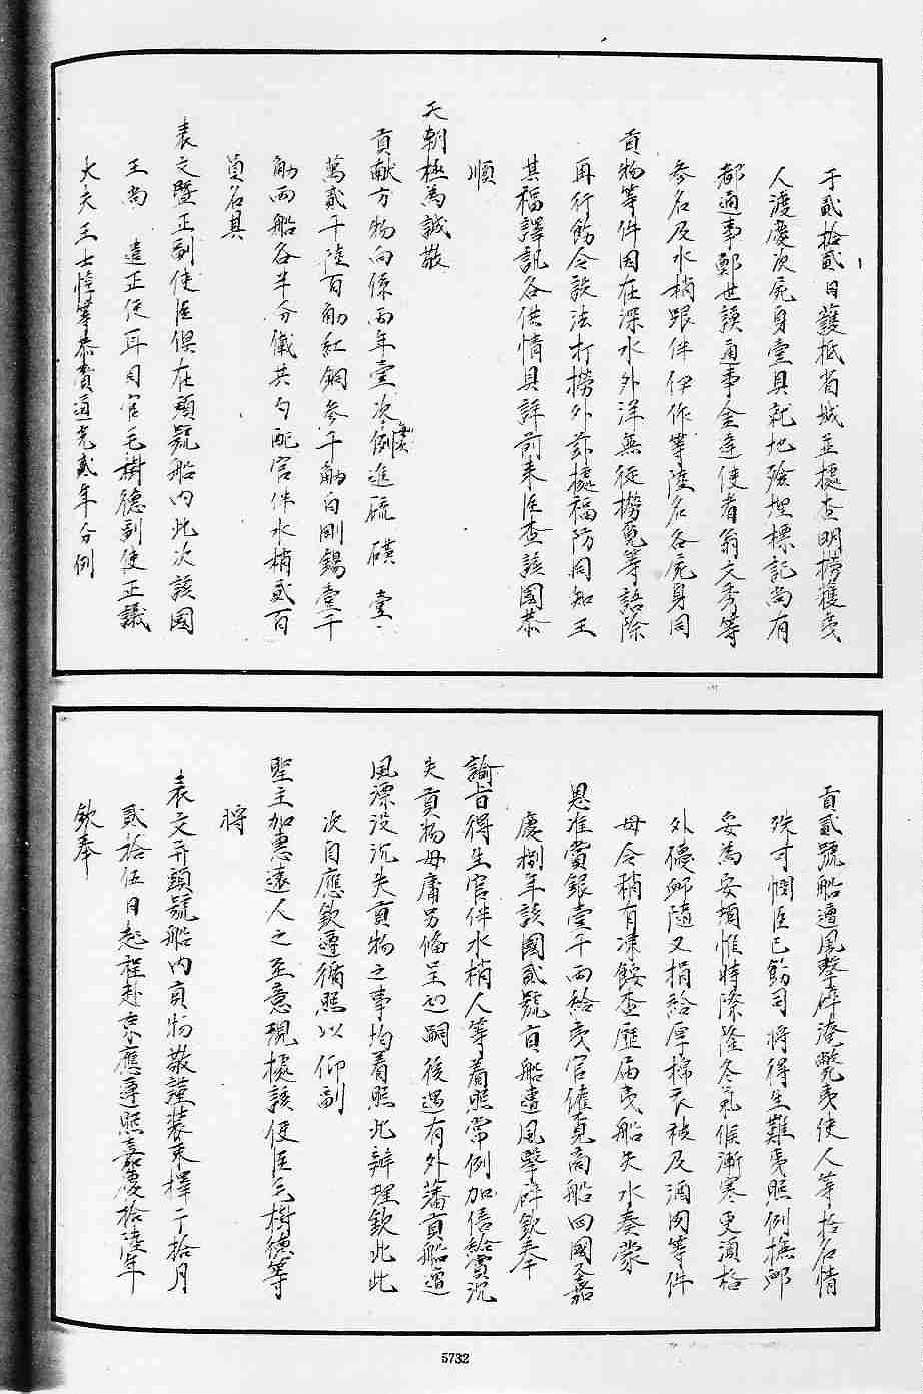 于貳拾貳日護抵省城並據查明撈獲夷
人渡慶次屍身壹具就地殮埋標記尚有
都通事鄭世謨通事金達使者翁文秀等
參名及水梢跟伴伊作等陸名各屍身同
貢物等件因在深水外洋無從撈覓等語除
再行飭令設法打撈外茲據福防同知王
其福譯訊各供情具詳前来臣查該國恭
順
天朝極為誠敬
貢献方物向係兩年壹次每次例進硫磺壹
萬貳千陸百觔紅銅參千觔白剛錫壹千
觔兩船各半分儎其勻配官伴水梢貳百
員名具
表文暨正副使臣俱在頭號船内此次該國
王尚 遣正使耳目官毛樹德副使正議
大夫王士惇等恭賫道光貳年分例
貢貳號船遭風擊碎淹斃夷使人等拾名情
殊可憫臣已飭司將得生難夷照例撫卹
妥為安頓惟時際隆冬氣候漸寒更須格
外德卹隨又捐給厚棉衣被及酒肉等件
毋令稍有凍餒查歷届夷船失水奏蒙
恩准賞銀壹千兩給夷官僱覓商船回國又嘉
慶捌年該國貳號貢船遭風擊碎欽奉
諭旨得生官伴水梢人等着照常例加倍給賞沉
失貢物毋庸另俻呈進嗣後遇有外藩貢船遭
風漂没沉失貢物之事均着照此辦理欽此此
次自應欽遵循照以仰副
聖主加惠遠人之至意現據該使臣毛樹德等
將
表文并頭號船内貢物敬謹装束擇于拾月
貳拾伍日起程赴京應遵照嘉慶拾陸年
欽奉
5732